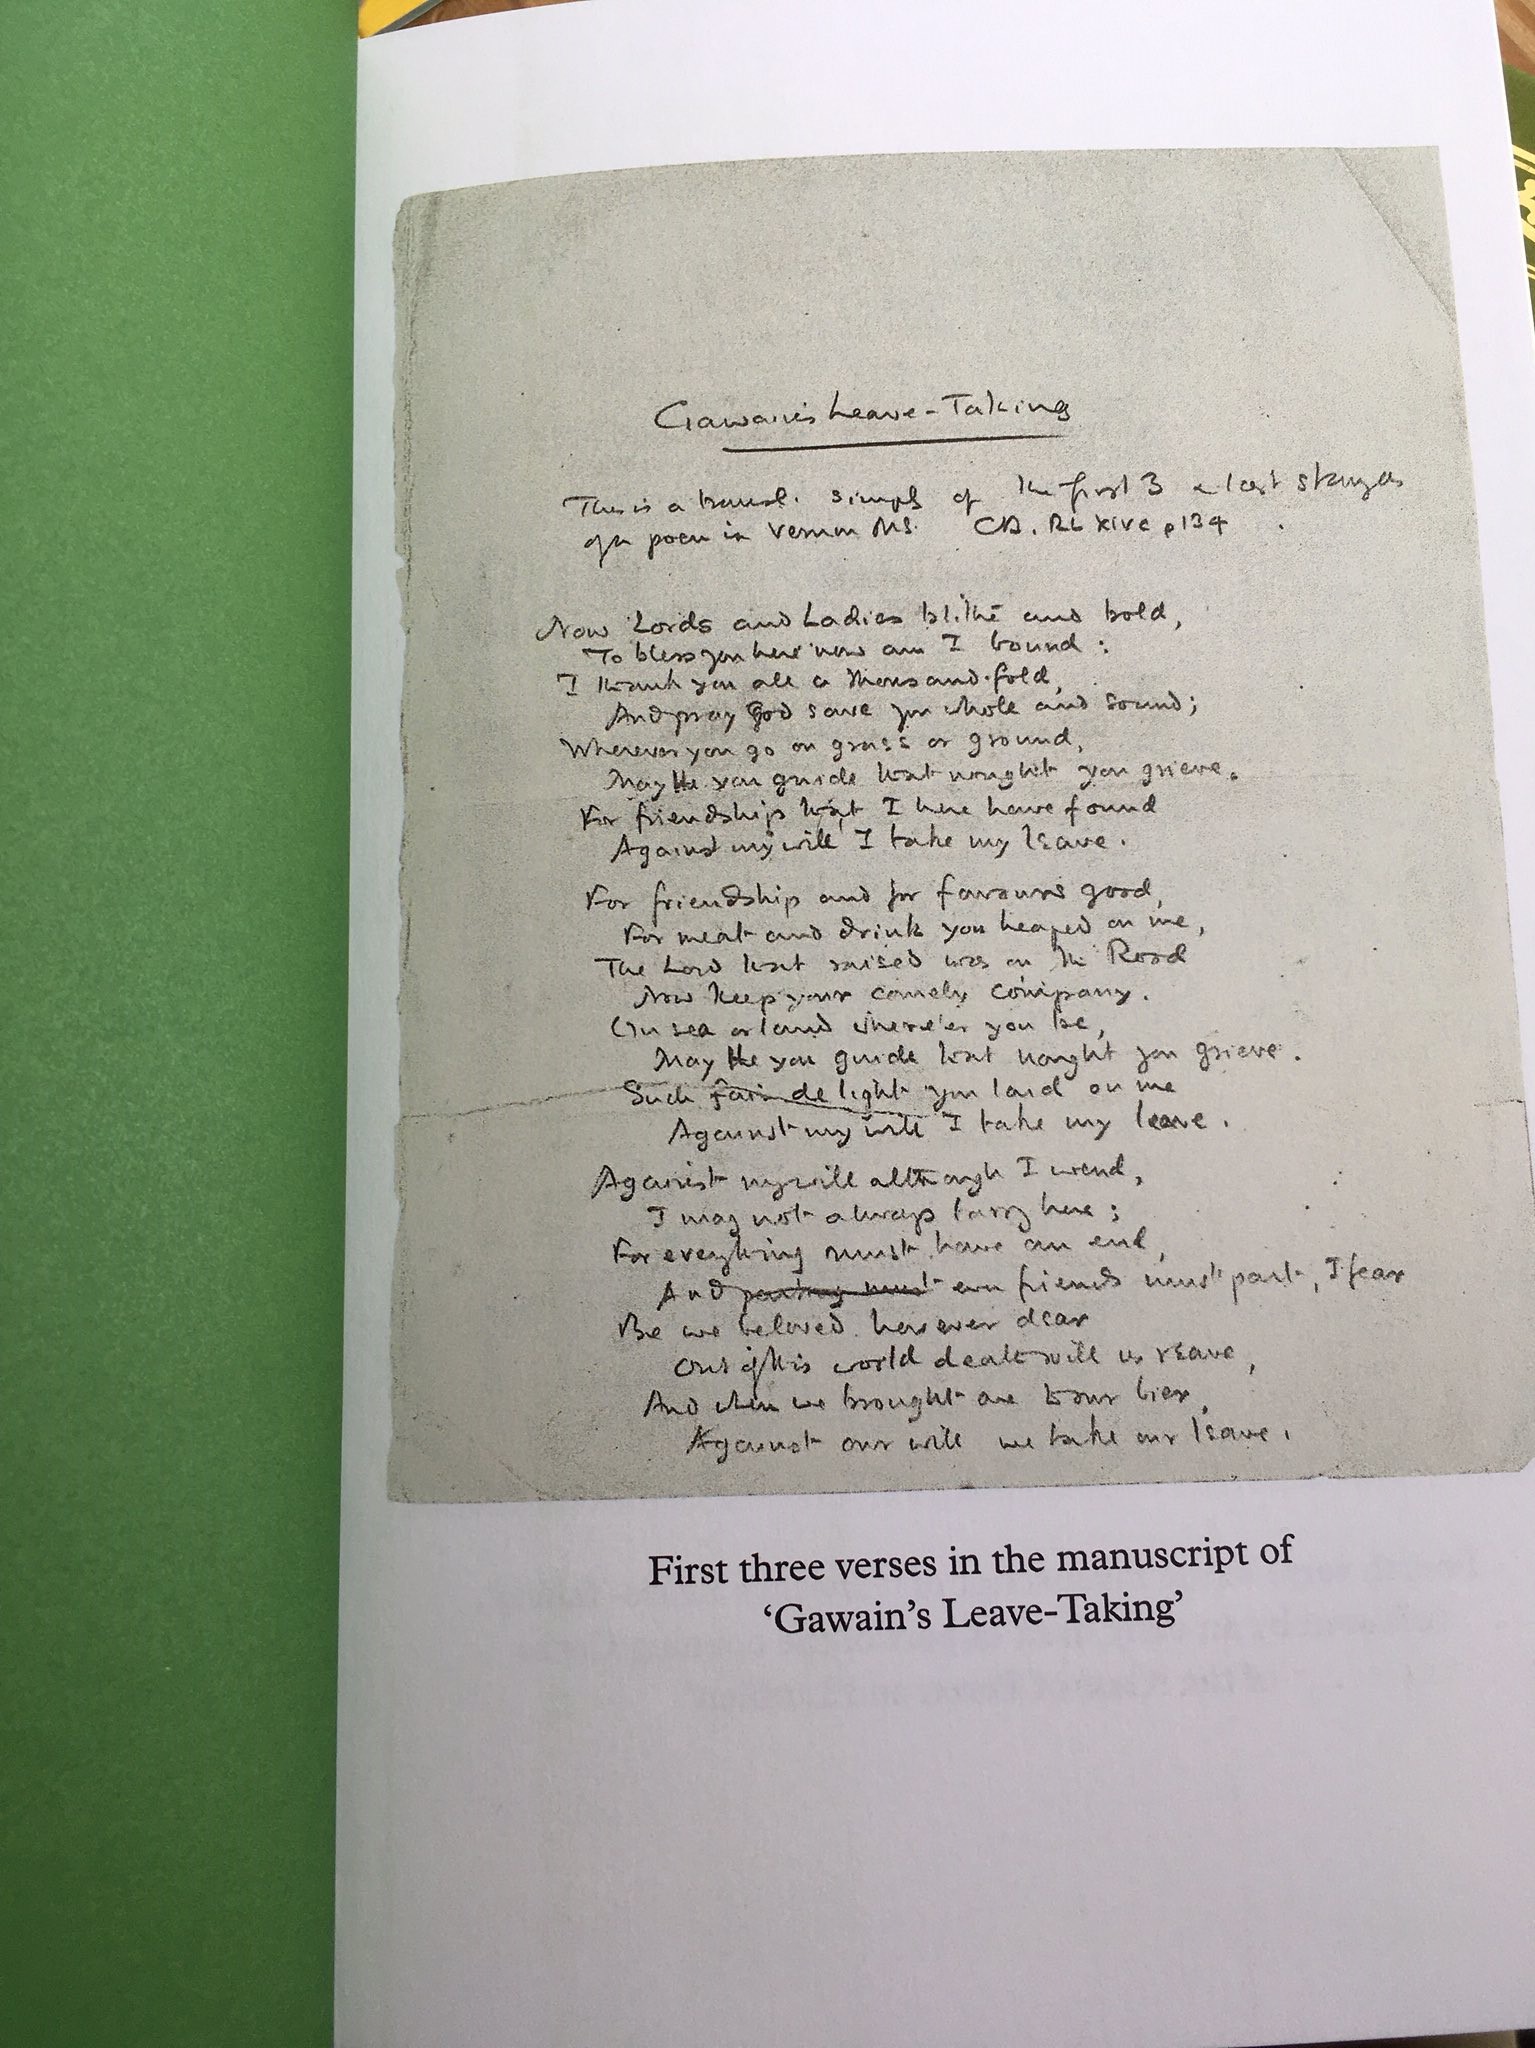 Gawain's Leave-Taking
This is a transl. simply of the first 3 & last stanzas
of a poem in Vernon MS. CB. RL xivc p134
Now Lords and Ladies blithe and bold,
To bless you here now am I bound:
I thank you all a thousand-fold,
And pray God save you whole and sound;
Wherever you go on grass or ground,
May He you guide that nought you grieve.
For friendship that I here have found
Against my will I take my leave.
For friendship and for favours good,
For meat and drink you heaped on me,
The Lord that raised was on the Rood
Now keep your comely company.
On sea or land where'er you be,
May He you guide that nought you grieve.
Such fair delight you laid on me
Against my will I take my leave.
Against my will although I wend,
I may not always tarry here;
For everything must have an end,
And parting must even friends must part, I fear
Be we beloved however dear
Out of this world death will us reave,
And when we brought are to our bier,
Against our will we take our leave.
First three verses in the manuscript of
‘Gawain’s Leave-Taking’